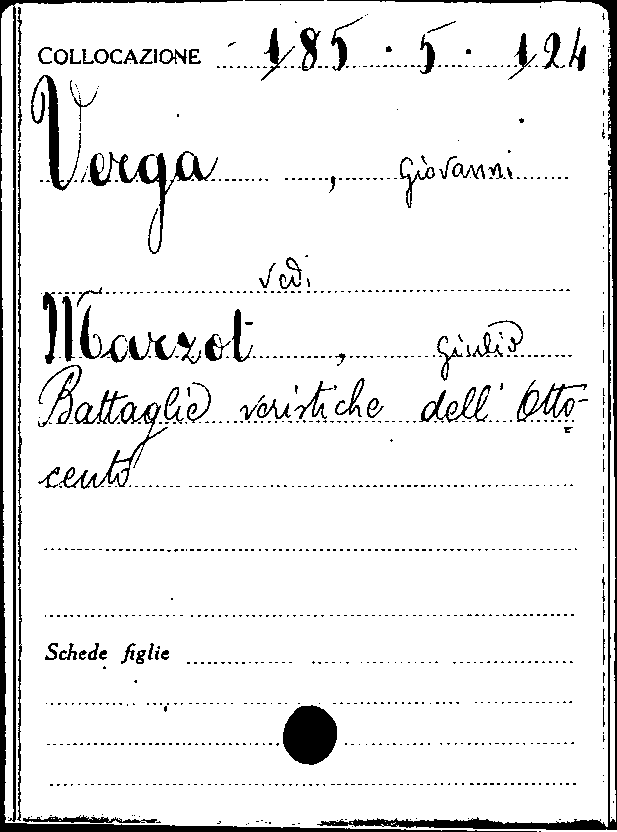 COLLOCAZIONE 185 · 5 · 124
Verga , Giovanni
vedi
Marzot , Giulio
Battaglie veristiche dell' Otto-
cento
Schede figlie